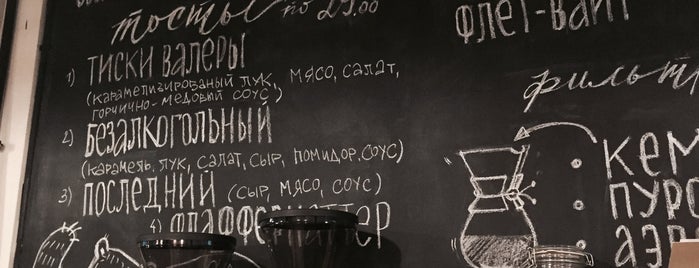 тосты по 29.00
1) ТИСКИ ВАЛЕРЫ
(КАРАМЕЛИЗИРОВАНЫЙ ЛУК, МЯСО, САЛАТ,
ГОРЧИЧНО-МЕДОВЫЙ СОУС)
2) БЕЗАЛКОГОЛЬНЫЙ
(КАРАМЕЛЬ, ЛУК, САЛАТ, СЫР, ПОМИДОР, СОУС)
3) ПОСЛЕДНИЙ (СЫР, МЯСО, СОУС)
4) ФЛАФФЕРНАТТЕР
ФЛЕТ-ВАЙТ
фильт
КЕМ
ПУРО
АЭР